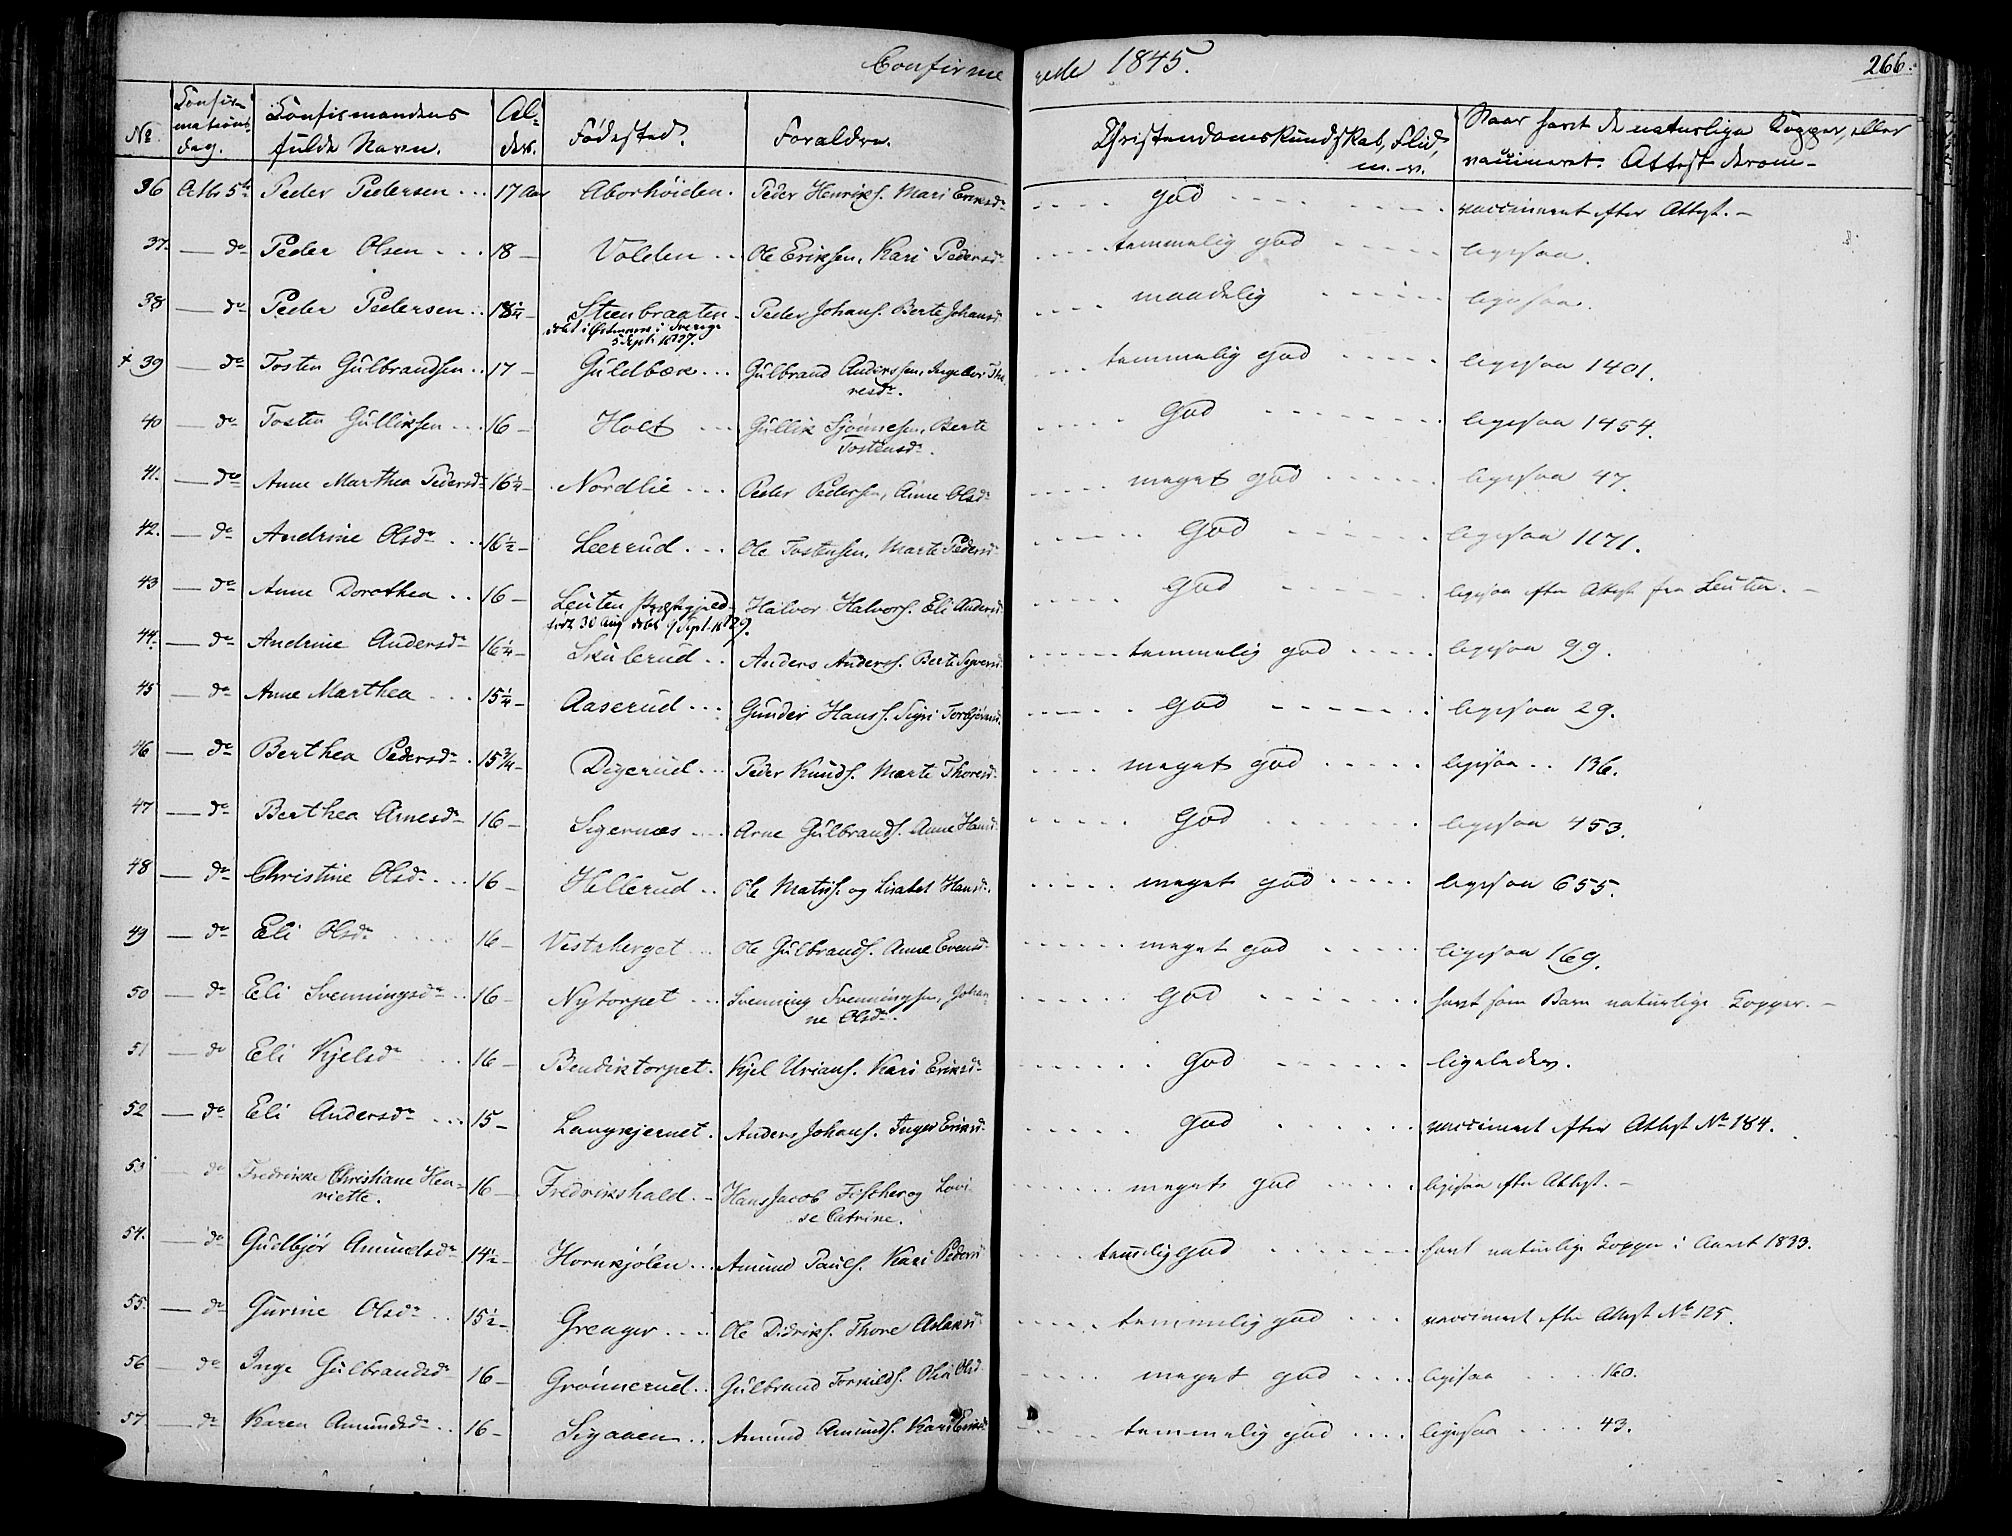 Confirmerede 1845.
266.
No
Confirmations dag.
Confirmandens fulde Navn.
Alder.
Fødested.
Forældre.
Christendomskundskab, Flid, m. v.
Naar havt de naturlige Kopper, eller vaccineret. Attest derom
36 Octbr 5te Peder Pedersen 17 Aar Aborhöiden. Peder Henriks. Mari Eriksdr god vaccineret efter Attest.
37. do Peder Olsen 18 Volden Ole Eriksen, Kari Pedersdr temmelig god ligesaa.
38 do Peder Pedersen 18¼ Steenbraaten. Peder Johans. Berte Johansdr maadelig ligesaa.
döbt i Östmark i Sverige
5 Sept. 1827.
+ 39 do Tosten Gulbrandsen 17 Guldbære Gulbrand Anderssen, Ingebor Tho temmelig god ligesaa 1401.
resdr.
40 do Tosten Gulliksen 16 Holt Gullik Sjönnesen, Berte god ligesaa 1454.
Tostensdr.
41. do Anne Marthea Pedersdr 16¼ Nordlie Peder Pedersen, Anne Olsdr meget god ligesaa 47.
42. do Andrine Olsdr 16½ Leerud Ole Tostensen, Marte Pedersdr God ligesaa 1171.
43 do Anne Dorothea 16 Leuten Præstegjeld Halvor Halvors. Eli Andersdr God ligesaa efter Attest fra Leuten.
født 30 Aug. döbt 9 Sept. 1829.
44. do Andrine Andersdr 16¼ Skulerud Anders Anders. Berte Syversdr temmelig god ligesaa 99.
45 do Anne Marthea 15¼ Aaserud Gunder Hanss. Sigri Torbjörnsdr God ligesaa 29.
46 do Berthea Pedersdr 15¾ Digerud Peder Knuds. Marte Thoresdr meget god ligesaa 136.
47 do Berthea Arnesdr 16 Sigernæs Arne Gulbrands. Anne Hansdr God ligesaa 453.
48 do Christine Olsdr 16 Hellerud Ole Mathis. og Lisabet Hansdr. meget god ligesaa 655.
49 do Eli Olsdr 16 Vestaberget Ole Gulbrands. Anne Evensdr meget god ligesaa 169.
50 do Eli Svenningsdr 16 Nytorpet Svenning Svenningsen, Johan God havt som Barn naturlige Kopper.
ne Olsdr.
51 do Eli Kjelsdr 16 Bendiktorpet. Kjel Urians. Kari Eriksdr God ligeledes.
52 do Eli Andersdr 15 Langkjernet. Anders Johans. Inger Eriksdr God vaccineret efter Attest No 184.
53 do Fredrikke Christiane Hen 16 Fredrikshald. Hans Jacob Fischer og Lovi meget god ligesaa efter Attest.
riette.
se Catrine.
54. do Gudbjör Amundsdr 14½ Hornkjölen Amund Pauls. Kari Pedersdr temelig god havt naturlige Kopper i Aaret 1833.
55. do Gurine Olsdr 15½ Grenger Ole Didriks. Thore Aslaksdr temmelig god vaccineret efter Attest No 125.
56 do Inge Gulbrandsdr 16 Grönnerud Gulbrand Torkilds. Olia Olsdr meget god ligesaa 160.
57. do Karen Amundsdr 16 Sigaaen Amund Amunds. Kari Eriksdr temmelig god ligesaa 43.